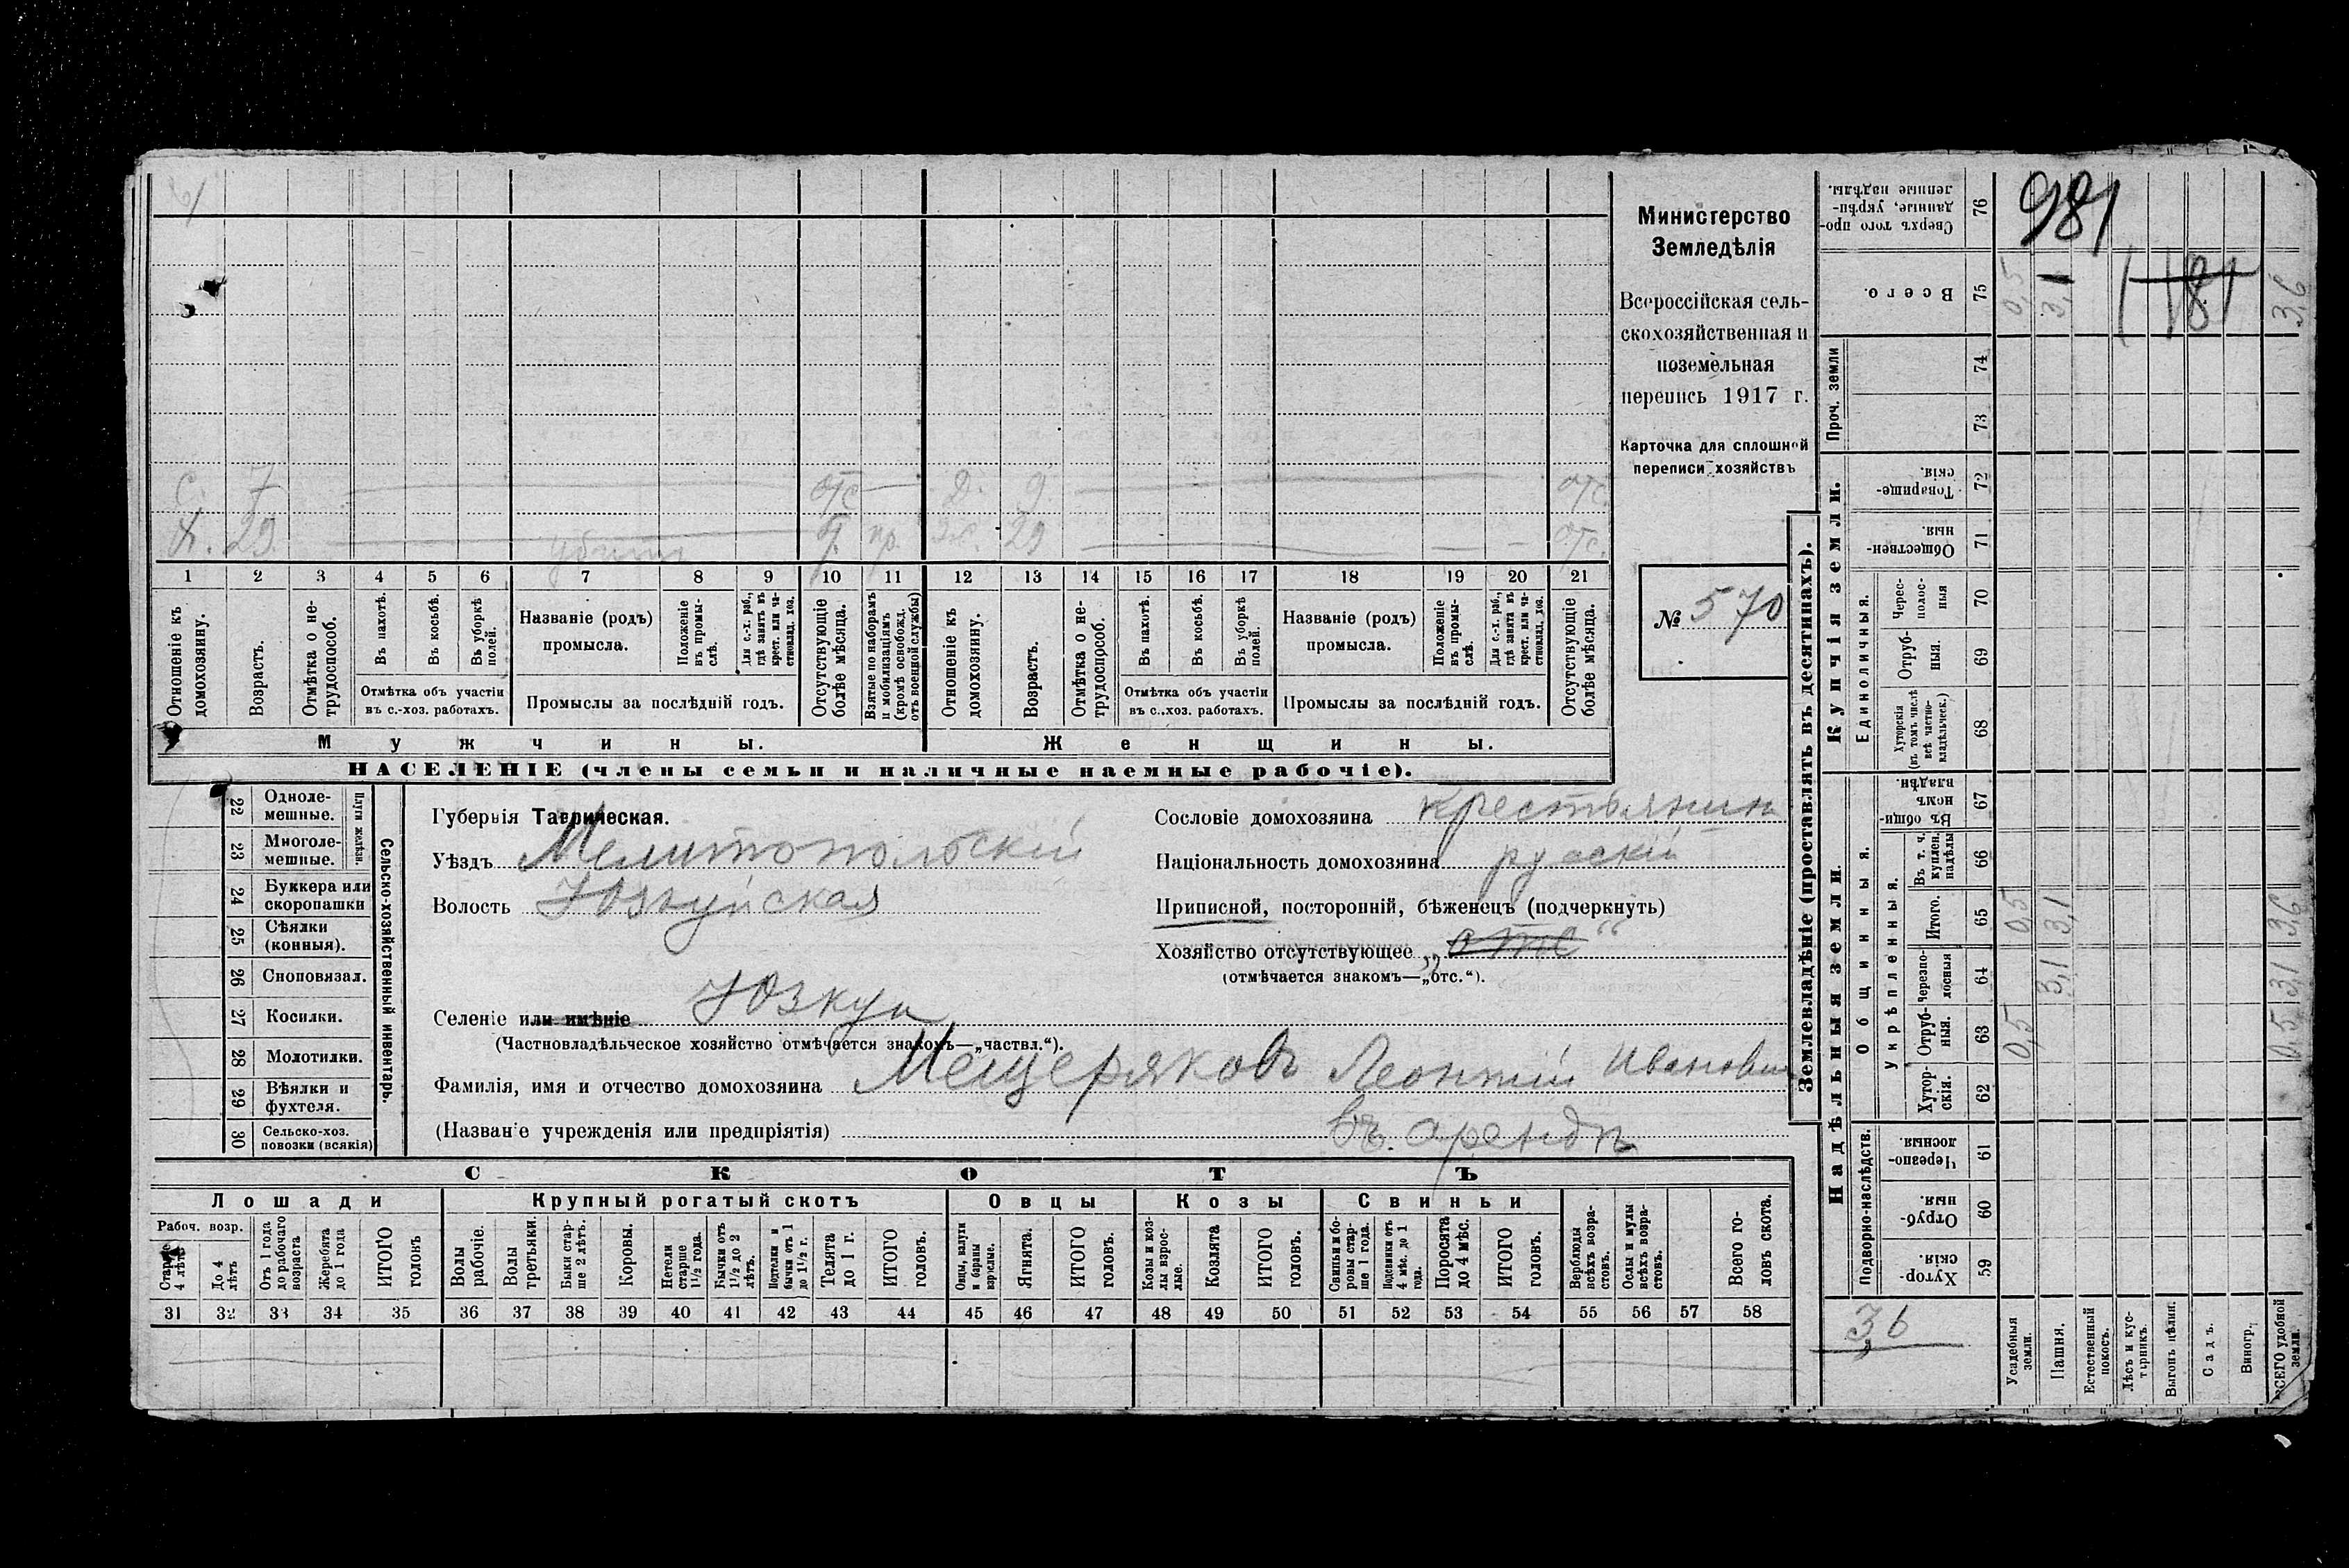 Министерство
Земледѣлія
Всероссійская сель-
скохозяйственная и
поземельная
перепись 1917 г.
Карточка для сплошной
переписи хозяйствъ
№ 570
С. 7 отс Д. 9 отс.
Х. 29 убитъ пр. Ж. 29 отс.
1 2 3 4 5 6 7 8 9 10 11 12 13 14 15 16 17 18 19 20 21
Отношеніе къ домохозяину.
Возрастъ.
Отмѣтка о не-трудоспособ.
Въ пахотѣ.
Въ косьбѣ.
Въ уборкѣ полей.
Отмѣтка объ участіи
въ с.-хоз. работахъ.
Названіе (родъ)
промысла.
Положеніе въ промы-слѣ.
Для с.-х. раб., гдѣ занятъ въ крест. или ча-стновлад. хоз.
Промыслы за послѣдній годъ.
Отсутствующіе болѣе мѣсяца.
Взятые по наборамъ и мобилизаціямъ (кромѣ освобожд. отъ военной службы)
Отношеніе къ домохозяину.
Возрастъ.
Отмѣтка о не-трудоспособ.
Въ пахотѣ.
Въ косьбѣ.
Въ уборкѣ полей.
Отмѣтка объ участіи
въ с.-хоз. работахъ.
Названіе (родъ)
промысла.
Положеніе въ промы-слѣ.
Для с.-х. раб., гдѣ занята въ крест. или ча-стновлад. хоз.
Промыслы за послѣдній годъ.
Отсутствующіе болѣе мѣсяца.
Мужчины. Женщины.
НАСЕЛЕНІЕ (члены семьи и наличные наемные рабочіе).
22 Одноле-мешные.
23 Многоле-мешные.
Плуги желѣзн.
24 Буккера или скоропашки
25 Сѣялки (конныя).
26 Сноповязал.
27 Косилки.
28 Молотилки.
29 Вѣялки и фухтеля.
30 Сельско-хоз. повозки (всякія)
Сельско-хозяйственный инвентарь.
Губернія Таврическая.
Уѣздъ Мелитопольскій
Волость Юзкуйская
Селеніе или имѣніе Юзкуи
(Частновладѣльческое хозяйство отмѣчается знакомъ—„частвл.“).
Фамилія, имя и отчество домохозяина Мещеряковъ Леонтій Иванович
(Названіе учрежденія или предпріятія) въ. арендѣ
Сословіе домохозяина крестьянин
Національность домохозяина руаскій
Приписной, посторонній, бѣженецъ (подчеркнуть)
Хозяйство отсутствующее „отс“
(отмѣчается знакомъ—„отс.“).
СКОТЪ
Лошади Крупный рогатый скотъ Овцы Козы Свиньи
Рабоч. возр.
Старше 4 лѣтъ
До 4 лѣтъ
Отъ 1 года до рабочаго возраста
Жеребята до 1 года
ИТОГО головъ
Волы рабочіе.
Волы третьяки.
Быки стар-ше 2 лѣтъ.
Коровы.
Нетели старше 1½ года.
Бычки отъ 1½ до 2 лѣтъ.
Нетелки и бычки отъ 1 до 1½ г.
Телята до 1 г.
ИТОГО головъ.
Овцы, валухи и бараны взрослые.
Ягнята.
ИТОГО головъ.
Козы и коз-лы взрос-лые.
Козлята
ИТОГО головъ.
Свиньи и бо-ровы стар-ше 1 года.
Подсвинки отъ 4 мѣс. до 1 года.
Поросята до 4 мѣс.
ИТОГО головъ.
Верблюды всѣхъ возра-стовъ.
Ослы и мулы всѣхъ возра-стовъ.
Всего го-ловъ скота.
31 32 33 34 35 36 37 38 39 40 41 42 43 44 45 46 47 48 49 50 51 52 53 54 55 56 57 58
Землевладѣніе (проставлять въ десятинахъ).
Купчія земли.
Надѣльныя земли.
Сверхъ того про-данные, укрѣп-ленные надѣлы. 76 981
Всего. 75 0,5 3,1 181 3,6
Проч. земли 74 73
Товарище-скія. 72
Обществен-ныя 71
Единоличныя.
Черес-полос-ныя 70
Отруб-ныя. 69
Хуторскія (въ томъ числѣ всѣ частно-владѣльческ.) 68
Общинныя.
Въ общи-номъ владѣн. 67
Укрѣпленныя.
Въ т. ч. куплен. надѣлы 66
Итого. 65 0,5 3,1 3,6
Черезпо-лосныя 64 3,1 3,1
Отруб-ныя. 63 0,5 0,5
Хутор-скія. 62
Подворно-наслѣдств.
Черезпо-лосныя 61
Отруб-ныя. 60
Хутор-скія. 59
3,6
Усадебныя земли.
Пашня.
Естественный покосъ.
Лѣсъ и кус-тарникъ.
Выгонъ цѣлин.
Садъ.
Виногр.
ВСЕГО удобной земли.